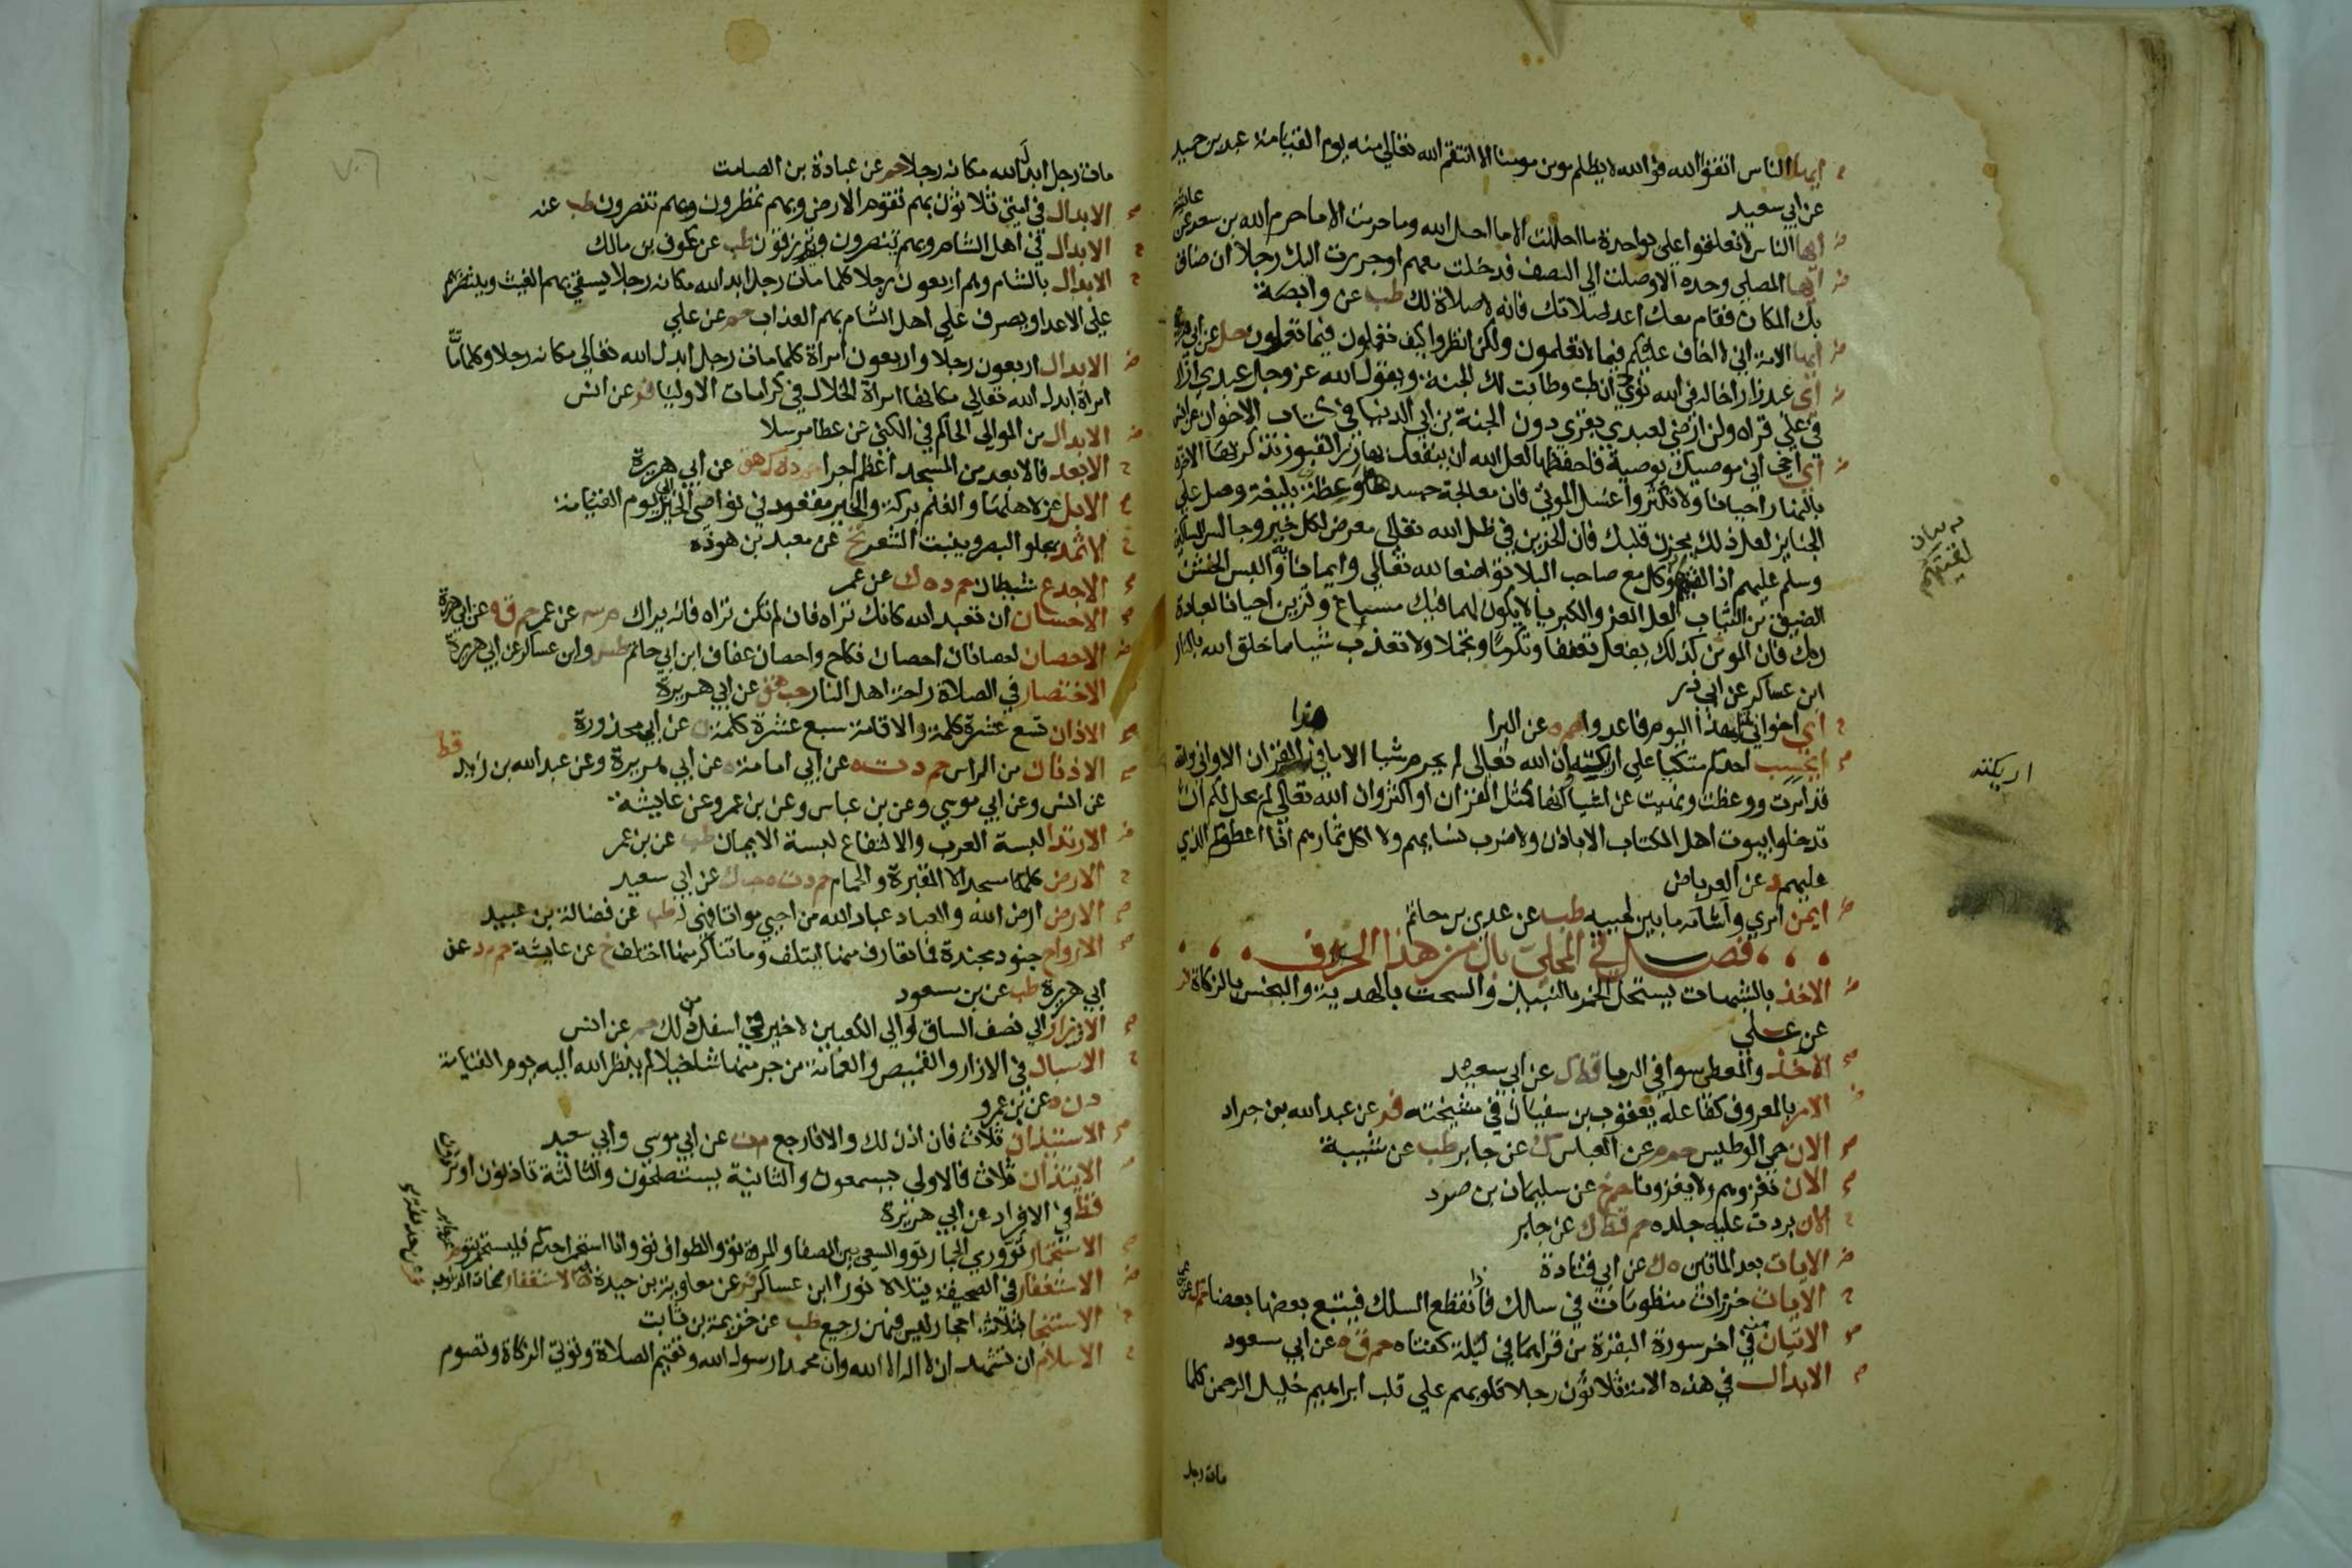 ايها الناس اتقوا الله فوالله لا يظلم مومن مومنا الا انتقم الله تعالى منه يوم القيامة عبد بن حميد
عن ابي سعيد
ايها الناس لا تعلقوا علي بواحدة ما احللت الا ما احل الله وما حرمت الا ما حرم الله بن سعد عن
عايشة
ايها المصلي وحده الا وصلت الي الصف فدخلت معهم او جررت اليك رجلا ان ضاق
بك المكان فقام معك اعد صلاتك فانه لا صلاة لك طب عن وابصة
ايها الامة اني لا اخاف عليكم فيما لا تعلمون ولكن انظروا كيف تعملون فيما تعلمون حل عن ابي هريرة
اي عبد زار اخا له في الله نودي ان طبت وطابت لك الجنة ويقول الله عز وجل عبدي زار
في علي قراه ولن ارضي لعبدي بقري دون الجنة بن ابي الدنيا في كتاب الاخوان عن انس
اي اخي اني موصيك بوصية فاحفظها لعل الله ان ينفعك بها زر القبور تذكر بها الاخرة
بالنهار احيانا ولا تكثر واغسل الموتي فان معالجة جسد خاو عظة بليغة وصل علي
الجنايز لعل ذلك يحزن قلبك فان الحزين في ظل الله تعالى معرض لكل خير وجالس المساكين
وسلم عليهم اذا لقيتهم وكل مع صاحب البلا تواضعا لله تعالي وايمانا به والبس الخشن
الضيق من الثياب لعل العز والكبريا لا يكون لهما فيك مساغ وتزين احيانا لعبادة
ربك فان المومن كذلك يفعل تعففا وتكرما وتجملا ولا تعذب شيا مما خلق الله بالنار
ابن عساكر عن ابي ذر
اي اخواني لمثل هذا اليوم فاعدوا حم ه عن البرا
هذا
ايحسب احدكم متكيا علي اريكته ان الله تعالى لم يحرم شيا الا ما في هذا القران الا واني والله
قد امرت ووعظت ونهيت عن اشيا انها كمثل القران او اكثر وان الله تعالي لم يحل لكم ان
تدخلوا بيوت اهل الكتاب الا باذن ولا ضرب نسايهم ولا اكل ثمارهم اذا اعطوكم الذي
عليهم د عن العرباض
ايمن امري واشامه ما بين لحييه طب عن عدي بن حاتم
فصل في المحلي بال من هذا الحرف
الاخذ بالشبهات يستحل الخمر بالنبيذ والسحت بالهدية والبخس بالزكاة فر
عن علي
الاخذ والمعطي سوا في الربا قط ك عن ابي سعيد
الامر بالمعروف كفاعله يعقوب بن سفيان في مشيخته فر عن عبد الله بن جراد
الان حمي الوطيس حم م عن العباس ك عن جابر طب عن شيبة
الان نغزوهم ولا يغزونا حم خ عن سليمان بن صرد
الان بردت عليه جلده حم قط ك عن جابر
الايات بعد الماتين ه ك عن ابي قتادة
الايات خرزات منظومات في سلك فانقطع السلك فيتبع بعضها بعضا حم ك عن
الايتان من اخر سورة البقرة من قراهما في ليلة كفتاه حم ق ه عن ابي مسعود
الابدال في هذه الامة ثلاثون رجلا قلوبهم علي قلب ابراهيم خليل الرحمن كلما
مات رجل
اريكته
مات رجل ابدل الله مكانه رجلا حم عن عبادة بن الصامت
الابدال في امتي ثلاثون بهم تقوم الارض وبهم تمطرون وبهم تنصرون طب عنه
الابدال في اهل الشام وبهم تنصرون وبهم ترزقون طب عن عوف بن مالك
الابدال بالشام وهم اربعون رجلا كلما مات رجل ابدل الله مكانه رجلا يسقي بهم الغيث وينتصر بهم
علي الاعدا ويصرف علي اهل الشام بهم العذاب حم عن علي
الابدال اربعون رجلا واربعون امراة كلما مات رجل ابدل الله تعالي مكانه رجلا وكلما ماتت
امراة ابدل الله تعالي مكانها امراة الخلال في كرامات الاوليا فر عن انس
الابدال من الموالي الحاكم في الكني عن عطا مرسلا
الابعد فالابعد من المسجد اعظم اجرا حم د ه ك هق عن ابي هريرة
الابل عز لاهلها والغنم بركة والخير معقود في نواصي الخيل الي يوم القيامة
الاثمد يجلو البصر وينبت الشعر تخ عن معبد بن هوذه
الاجدع شيطان حم د ه ك عن عمر
الاحسان ان تعبد الله كانك تراه فان لم تكن تراه فانه يراك م ٣ عن عمر حم ق ه عن ابي هريرة
الاحصان احصانان احصان نكاح واحصان عفاف ابن ابي حاتم طس وابن عساكر عن ابي هريرة
الاختصار في الصلاة راحة اهل النار حب هق عن ابي هريرة
الاذان تسع عشرة كلمة والاقامة سبع عشرة كلمة ن عن ابي محذورة
الاذنان من الراس حم د ت ه عن ابي امامة ه عن ابي هريرة وعن عبد الله بن زيد قط
عن انس وعن ابي موسي وعن بن عباس وعن بن عمر وعن عايشة
الارتدا لبسة العرب والالتفاع لبسة الايمان طب عن بن عمر
الارض كلها مسجد الا المقبرة والحمام حم د ت ه حب ك عن ابي سعيد
الارض ارض الله والعباد عباد الله من احيي مواتا فهي له طب عن فضالة بن عبيد
الارواح جنود مجندة فما تعارف منها ايتلف وما تناكر منها اختلف خ عن عايشة حم م د عن
ابي هريرة طب عن بن مسعود
الازار الي نصف الساق او الي الكعبين لا خير في اسفل من ذلك حم عن انس
الاسبال في الازار والقميص والعمامة من جر منها شيا خيلا لم ينظر الله اليه يوم القيامة
د ن ه عن بن عمرو
الاستيذان ثلاث فان اذن لك والا فارجع م ت عن ابي موسي وابي سعيد
الايتذان ثلاث فالاولي يسمعون والثانية يستصلحون والثالثة تاذنون او تردون
قط في الافراد عن ابي هريرة
الاستجمار تو ورمي الجمار تو والسعي بين الصفا والمروة تو والطواف تو واذا استجمر احدكم فليستجمر بتو م
الاستغفار في الصحيفة يتلالا نورا ابن عساكر فر عن معاوية بن حيدة الاستغفار ممحاة للذنوب
الاستنجا بثلاثة احجار ليس فيهن رجيع طب عن خزيمة بن ثابت
الاسلام ان تشهد ان لا اله الا الله وان محمدا رسول الله وتقيم الصلاة وتوتي الزكاة وتصوم